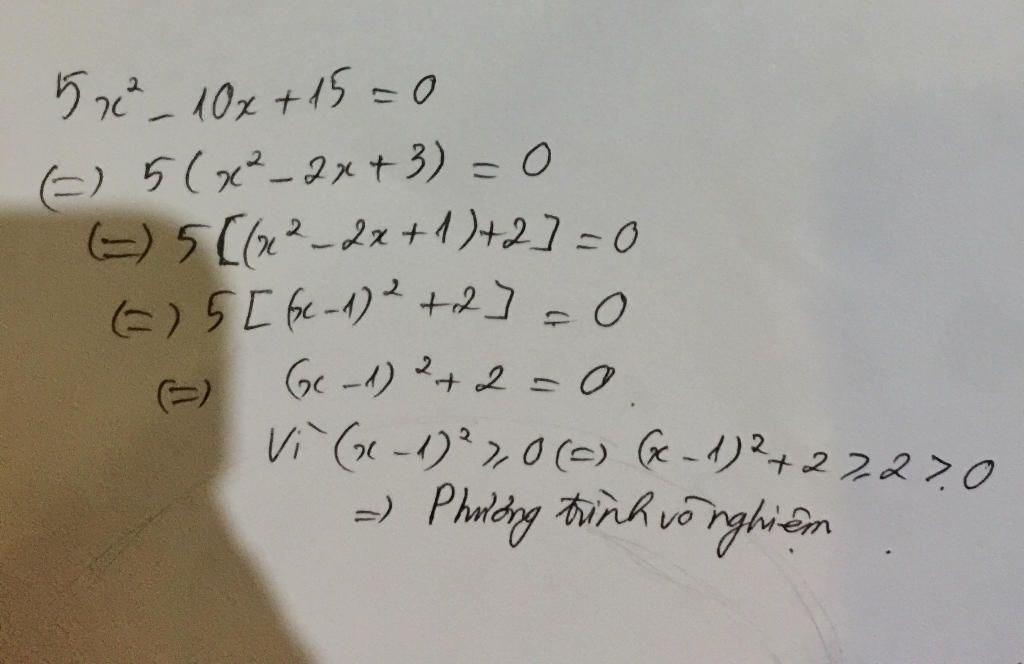 5x² - 10x + 15 = 0
(=) 5(x² - 2x + 3) = 0
(=) 5[(x² - 2x + 1) + 2] = 0
(=) 5[(x - 1)² + 2] = 0
(=) (x - 1)² + 2 = 0.
Vì (x - 1)² ≥ 0 (=) (x - 1)² + 2 ≥ 2 > 0
=) Phương trình vô nghiệm.